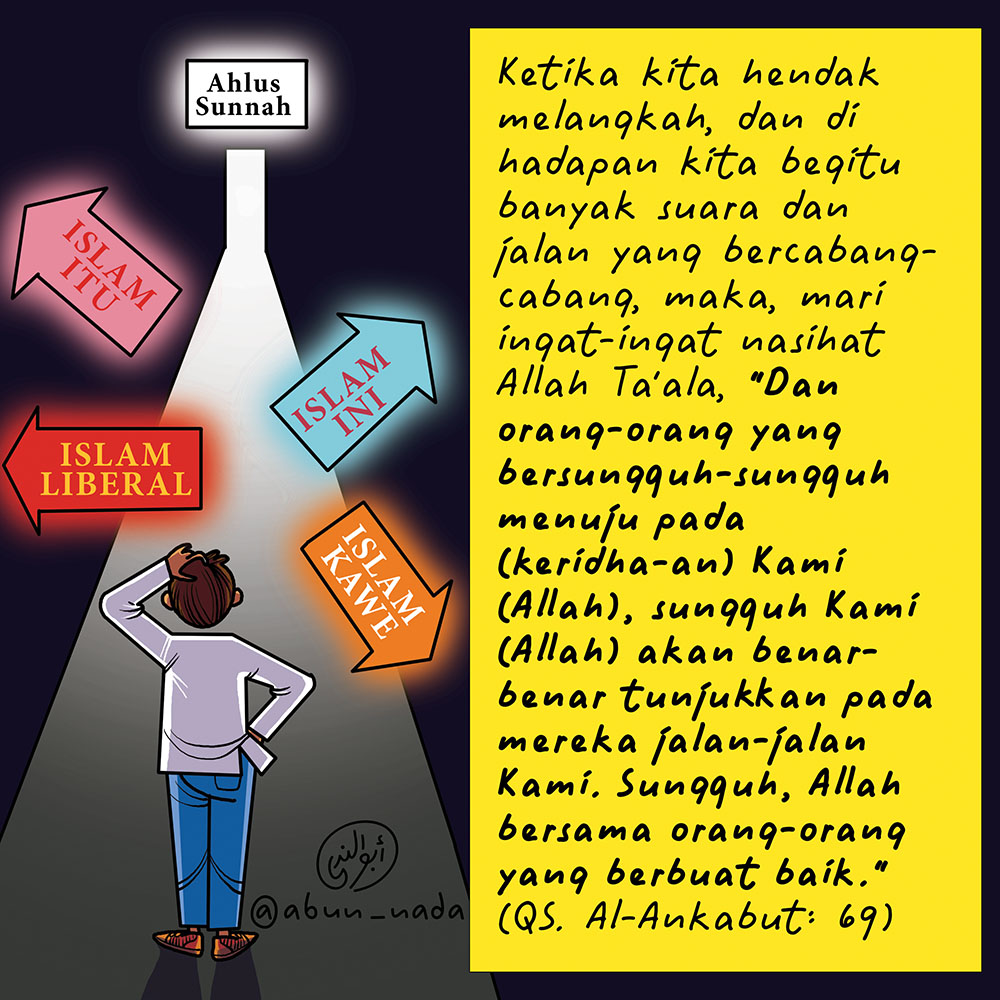 Ahlus
Sunnah
ISLAM
ITU
ISLAM
INI
ISLAM
LIBERAL
ISLAM
KAWE
@abun_nada
Ketika kita hendak
melangkah, dan di
hadapan kita begitu
banyak suara dan
jalan yang bercabang-
cabang, maka, mari
ingat-ingat nasihat
Allah Ta'ala, "Dan
orang-orang yang
bersungguh-sungguh
menuju pada
(keridha-an) Kami
(Allah), sungguh Kami
(Allah) akan benar-
benar tunjukkan pada
mereka jalan-jalan
Kami. Sungguh, Allah
bersama orang-orang
yang berbuat baik."
(QS. Al-Ankabut: 69)